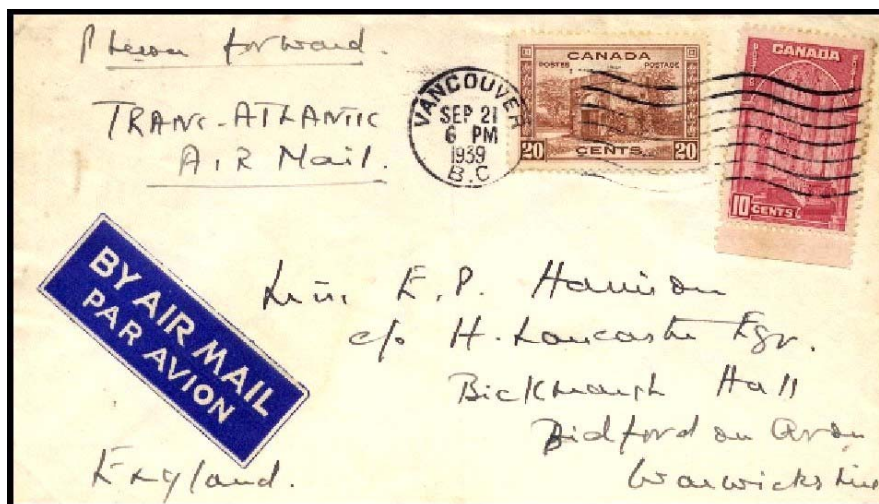 Please forward.
TRANS-ATLANTIC
AIR Mail.
VANCOUVER
SEP 21
6 PM
1939
B.C
CANADA
POSTES POSTAGE
20 CENTS 20
CANADA
10 CENTS
BY AIR MAIL
PAR AVION
Miss. E. P. Harrison
c/o H. Lancaster Esqr.
Hall
Bidford on Avon
Warwickshire
England.